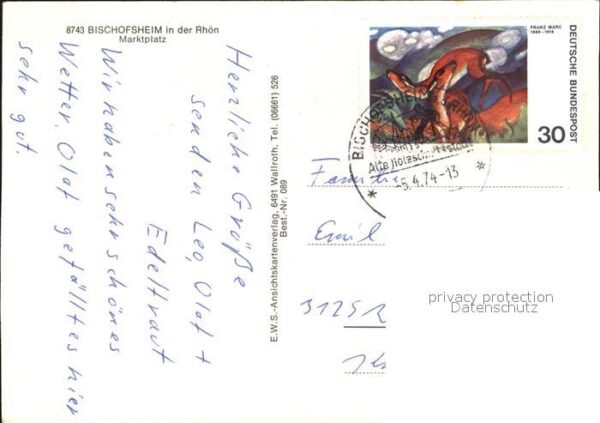 8743 BISCHOFSHEIM in der Rhön
Marktplatz
Herzliche Grüße
senden Leo, Olaf +
Edeltraut
Wir haben sehr schönes
Wetter. Olaf gefällt es hier
sehr gut.
E.W.S.-Ansichtskartenverlag, 6491 Wallroth, Tel. (06661) 526
Best.-Nr. 089
FRANZ MARC
1880-1916
DEUTSCHE BUNDESPOST
30
BISCHOFSHEIM
Alte Holzschnitzerstadt
-5.4.74-13
Familie
Emil
privacy protection
Datenschutz